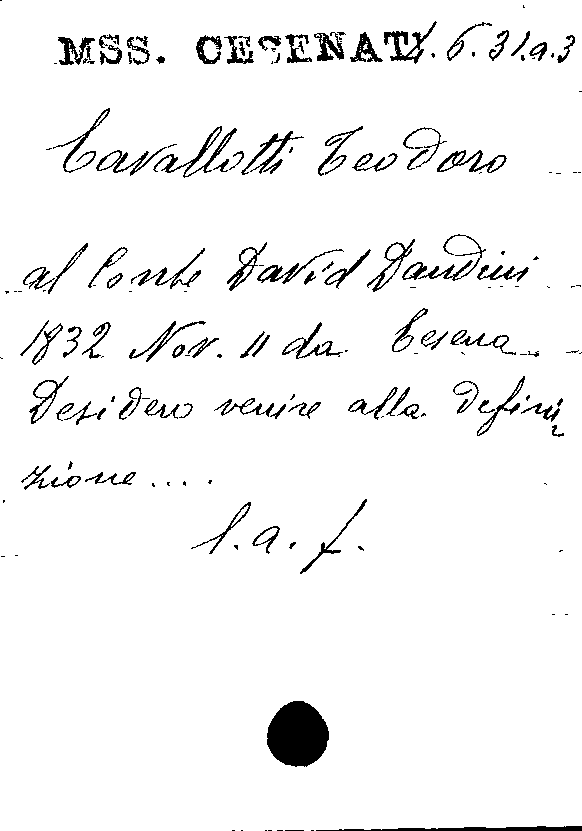 MSS. CESENATI. 6. 31.a.3
Cavallotti Teodoro
al Conte David Dandini
1832 Nov. 11 da Cesena.
Desidero venire alla defini
zione....
l. a. f.